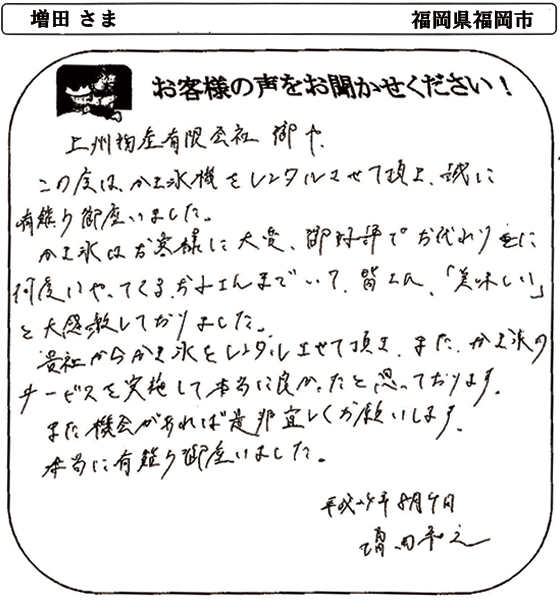 増田 さま 福岡県福岡市
お客様の声をお聞かせください！
上州物産有限会社 御中
この度は、かき氷機をレンタルさせて頂き、誠に
有難う御座いました。
かき氷はお客様に大変、御好評でお代わりをに
何度もやってくるお子さんまでいて、皆さん、「美味しい」
と大感激しておりました。
貴社からかき氷をレンタルさせて頂き、また、かき氷の
サービスを実施して本当に良かったと思っております。
また機会があれば是非宜しくお願いします。
本当に有難う御座いました。
平成24年8月9日
増田